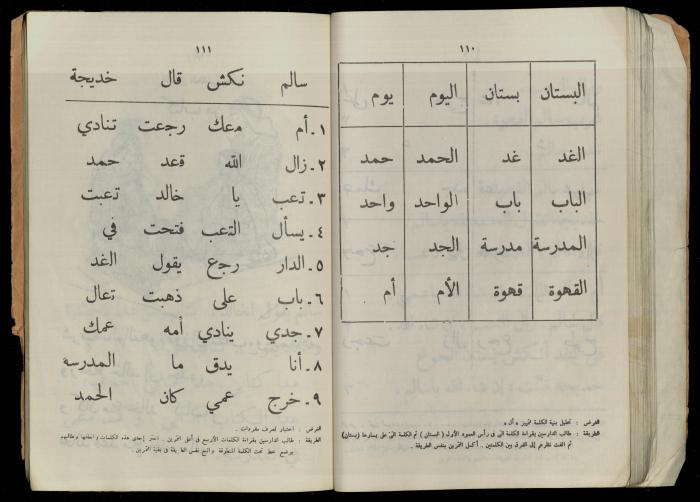 ١١٠
البستان بستان اليوم يوم
الغد غد الحمد حمد
الباب باب الواحد واحد
المدرسة مدرسة الجد جد
القهوة قهوة الأم أم
الغرض : تحليل بنية الكلمة لتمييز « ال »
الطريقة : طالب الدارسين بقراءة الكلمة التي في رأس العمود الأول ( البستان ) ثم الكلمة التي على يسارها (بستان)
ثم الفت نظرهم إلى الفرق بين الكلمتين . أكمل التمرين بنفس الطريقة .
١١١
سالم نكش قال خديجة
١. أم معك رجعت تنادي
٢. زال الله قعد حمد
٣. تعب يا خالد تعبت
٤. يسأل التعب فتحت في
٥. الدار رجع يقول الغد
٦. باب على ذهبت تعال
٧. جدي ينادي أمه عمك
٨. أنا يدق ما المدرسة
٩. خرج عمي كان الحمد
الغرض : اختبار لتعرف مفردات .
الطريقة : طالب الدارسين بقراءة الكلمات الأربع في أعلى التمرين . اختر إحدى هذه الكلمات وانطقها وطالبهم
بوضع خط تحت الكلمة المنطوقة واتبع نفس الطريقة في بقية التمرين .